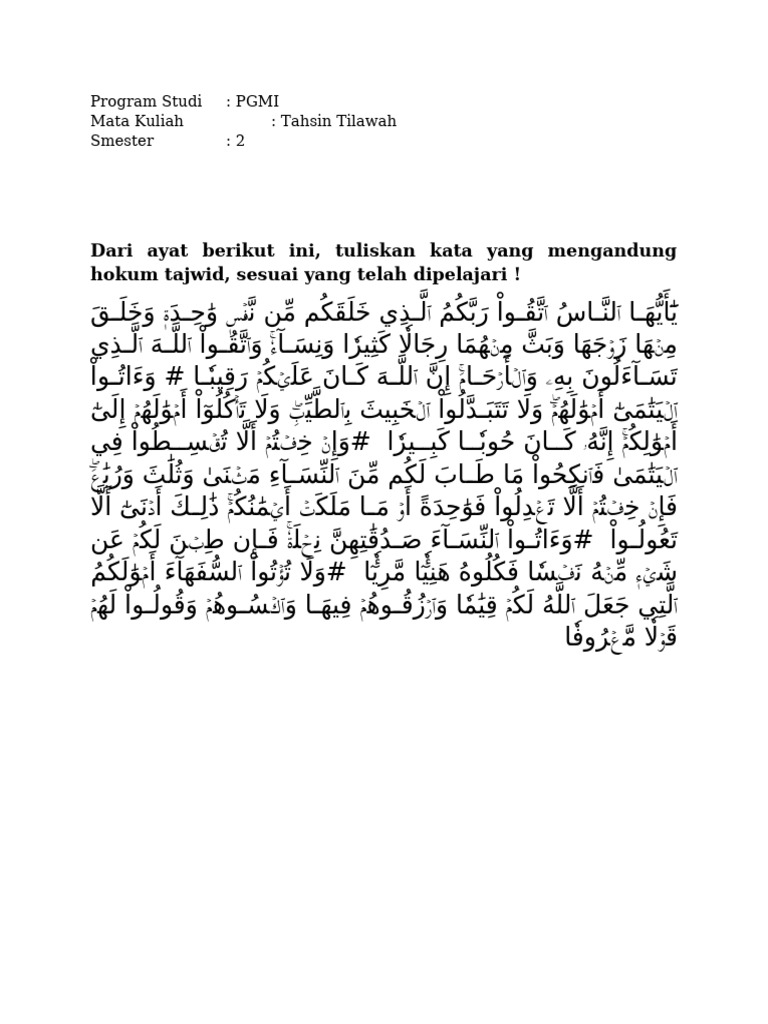 Program Studi : PGMI
Mata Kuliah : Tahsin Tilawah
Smester : 2
Dari ayat berikut ini, tuliskan kata yang mengandung
hokum tajwid, sesuai yang telah dipelajari !
يَٰٓأَيُّهَـا ٱلنَّـاسُ ٱتَّقُـواْ رَبَّكُمُ ٱلَّـذِي خَلَقَكُم مِّن نَّفۡسٖ وَٰحِـدَةٖ وَخَلَـقَ
مِنۡهَا زَوۡجَهَا وَبَثَّ مِنۡهُمَا رِجَالٗا كَثِيرٗا وَنِسَـآءٗۚ وَٱتَّقُـواْ ٱللَّـهَ ٱلَّـذِي
تَسَـآءَلُونَ بِهِۦ وَٱلۡأَرۡحَـامَۚ إِنَّ ٱللَّـهَ كَـانَ عَلَيۡكُمۡ رَقِيبٗـا # وَءَاتُـواْ
ٱلۡيَتَٰمَىٰٓ أَمۡوَٰلَهُمۡۖ وَلَا تَتَبَـدَّلُواْ ٱلۡخَبِيثَ بِٱلطَّيِّبِۖ وَلَا تَأۡكُلُوٓاْ أَمۡوَٰلَهُمۡ إِلَىٰٓ
أَمۡوَٰلِكُمۡۚ إِنَّهُۥ كَـانَ حُوبٗـا كَبِـيرٗا #وَإِنۡ خِفۡتُمۡ أَلَّا تُقۡسِـطُواْ فِي
ٱلۡيَتَٰمَىٰ فَٱنكِحُواْ مَا طَـابَ لَكُم مِّنَ ٱلنِّسَـآءِ مَثۡنَىٰ وَثُلَٰثَ وَرُبَٰعَۖ
فَإِنۡ خِفۡتُمۡ أَلَّا تَعۡدِلُواْ فَوَٰحِدَةً أَوۡ مَـا مَلَكَتۡ أَيۡمَٰنُكُمۡۚ ذَٰلِـكَ أَدۡنَىٰٓ أَلَّا
تَعُولُـواْ #وَءَاتُـواْ ٱلنِّسَـآءَ صَـدُقَٰتِهِنَّ نِحۡلَةٗۚ فَـإِن طِبۡنَ لَكُمۡ عَن
شَيۡءٖ مِّنۡهُ نَفۡسٗا فَكُلُوهُ هَنِيٓـٔٗا مَّرِيٓـٔٗا #وَلَا تُؤۡتُواْ ٱلسُّفَهَآءَ أَمۡوَٰلَكُمُ
ٱلَّتِي جَعَلَ ٱللَّهُ لَكُمۡ قِيَٰمٗا وَٱرۡزُقُـوهُمۡ فِيهَـا وَٱكۡسُـوهُمۡ وَقُولُـواْ لَهُمۡ
قَوۡلٗا مَّعۡرُوفٗا